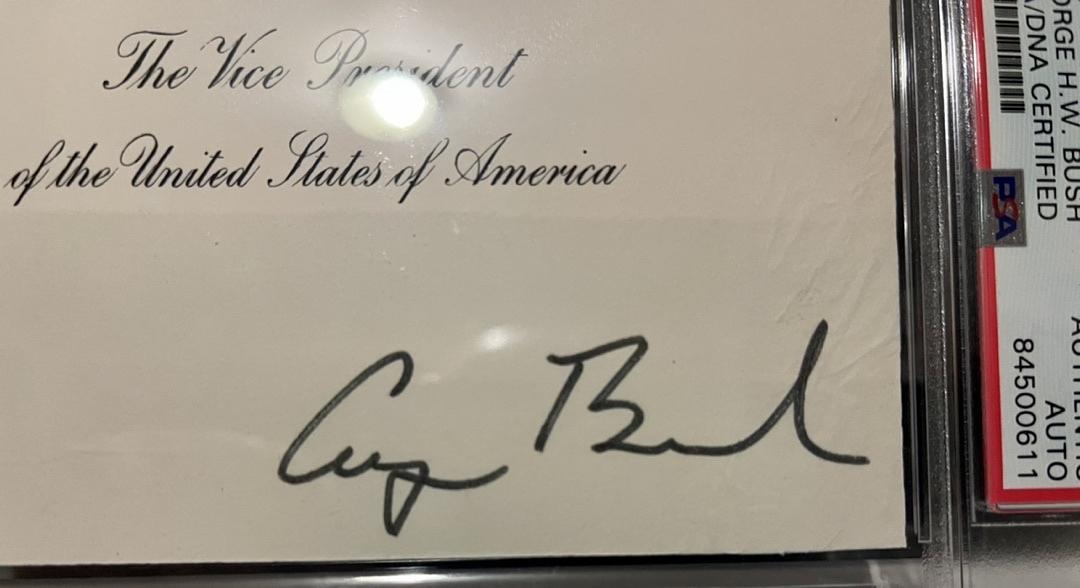 The Vice President
of the United States of America
George Bush
ORGE H.W. BUSH
A/DNA CERTIFIED
PSA
AUTHENTIC
AUTO
84500611